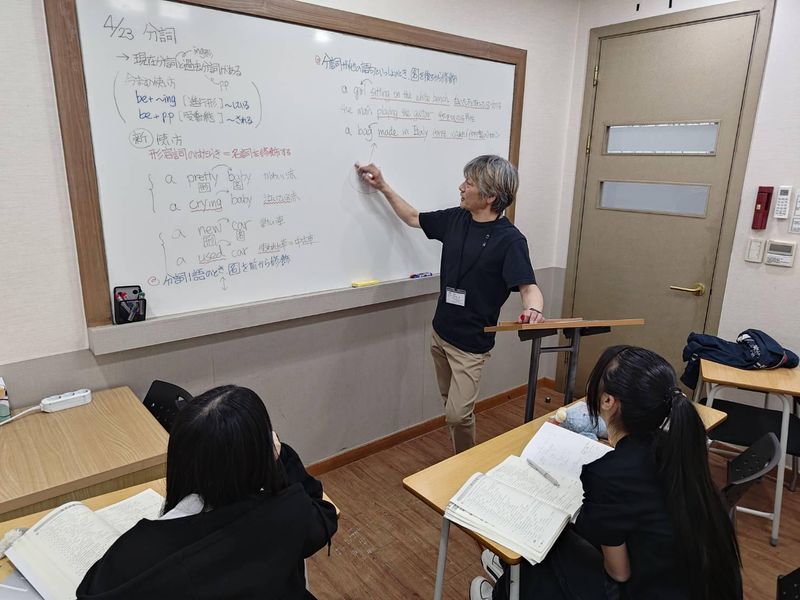 4/23 分詞
→ 現在分詞と過去分詞がある
ing形
pp
今までの使い方
be + ~ing [進行形] ~している
be + pp [受動態] ~される
新 使い方
形容詞のはたらき = 名詞を修飾する
a pretty baby かわいい赤
a crying baby 泣いている赤
a new car 新しい車
a used car 使われた車 = 中古車
分詞1語のとき、名を前から修飾
分詞が他の語句といっしょのとき、名を後ろから修飾
a girl sitting on the white bench
the man playing the guitar
a bag made in Italy